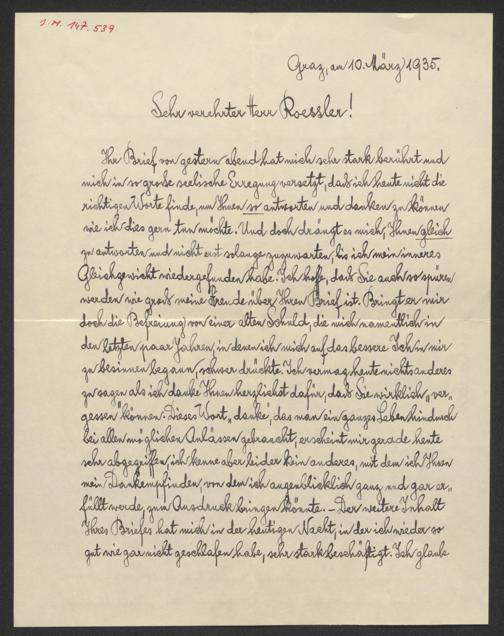 J.N. 147.539
Graz, am 10. März 1935.
Sehr verehrter Herr Roessler!
Ihr Brief von gestern abend hat mich sehr stark berührt und
mich in so große seelische Erregung versetzt, daß ich heute nicht die
richtigen Worte finde, um Ihnen so antworten und danken zu können
wie ich dies gern tun möchte. Und doch drängt es mich, Ihnen gleich
zu antworten und nicht erst solange zuzuwarten, bis ich mein inneres
Gleichgewicht wiedergefunden habe. Ich hoffe, daß Sie auch so spüren
werden wie groß meine Freude über Ihren Brief ist. Bringt er mir
doch die Befreiung von einer alten Schuld, die mich namentlich in
den letzten paar Jahren, in denen ich mich auf das bessere Ich in mir
zu besinnen begann, schwer drückte. Ich vermag heute nichts anderes
zu sagen als ich danke Ihnen herzlichst dafür, daß Sie wirklich „ver-
gessen" können. Dieses Wort „danke", das man ein ganzes Leben hindurch
bei allen möglichen Anlässen gebraucht, erscheint mir gerade heute
sehr abgegriffen, ich kenne aber leider kein anderes, mit dem ich Ihnen
mein Dankempfinden, von dem ich augenblicklich ganz und gar er-
füllt werde, zum Ausdruck bringen könnte. – Der weitere Inhalt
Ihres Briefes hat mich in der heutigen Nacht, in der ich wieder so
gut wie gar nicht geschlafen habe, sehr stark beschäftigt. Ich glaube